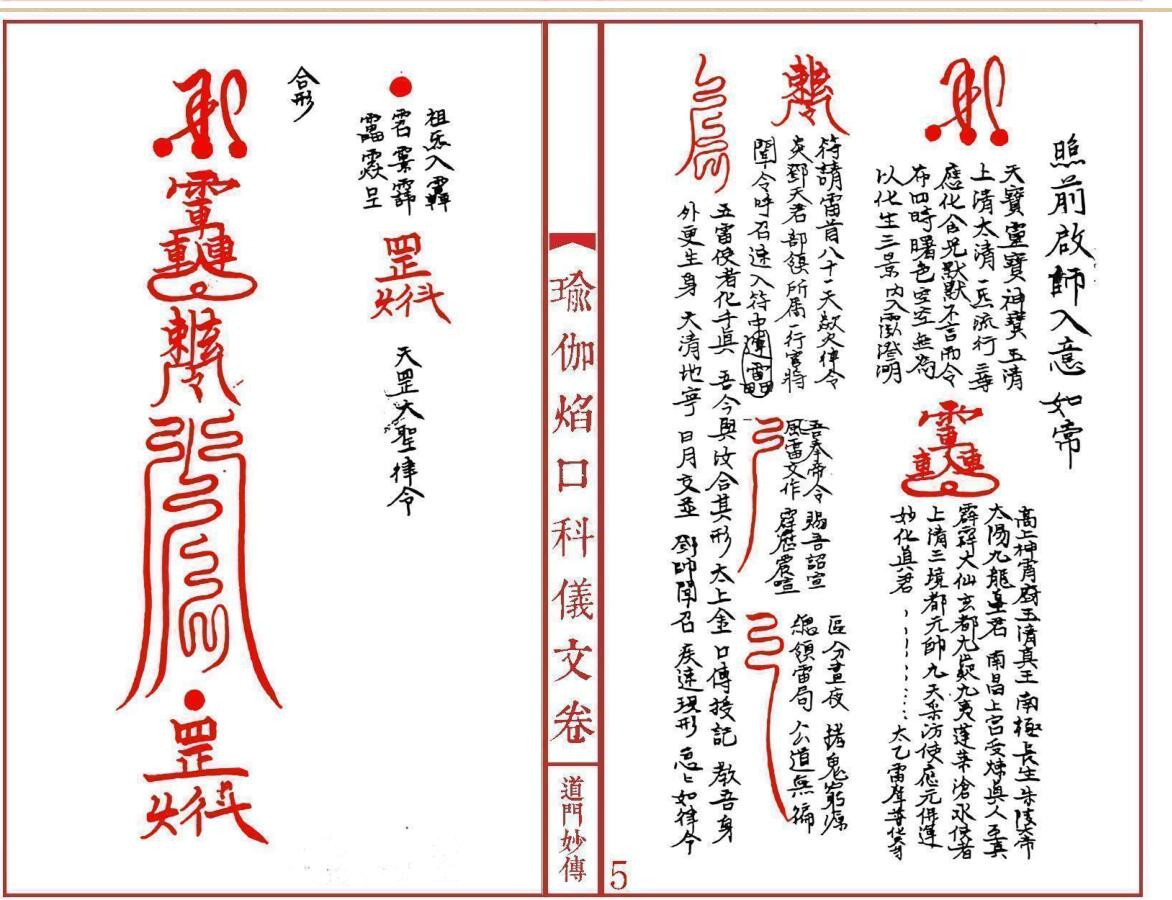 照前啟師入意如常
天寶靈寶神寶玉清
上清太清一炁流行三尊
應化含光默默不言而令
布四時曙色空空無為
以化生三景內入澄明
高上神霄府玉清真王 南極長生朱陵大帝
太陽九龍皇君 南昌上宮受煉真人至真
大仙玄都九炁九夷蓬萊滄水使者
上清三境都元帥九天采訪使應元保運
妙化真君 太乙雷聲普化天尊
符請雷首八十一天欻火律令
炎鄧天君部領所屬一行官將
聞令呼召速入符中
吾奉帝令 賜吾詔宣
風雷文作 霹靂震喧
區分晝夜 搭鬼窮源
總領雷局 公道無偏
五雷使者化千真 吾今與汝合其形 太上金口傳授記 教吾身
外更生身 天清地寧 日月交並 鄧帥聞召 疾速現形 急急如律令
瑜伽焰口科儀文卷
道門妙傳
5
祖炁入
天罡大聖律令
合形